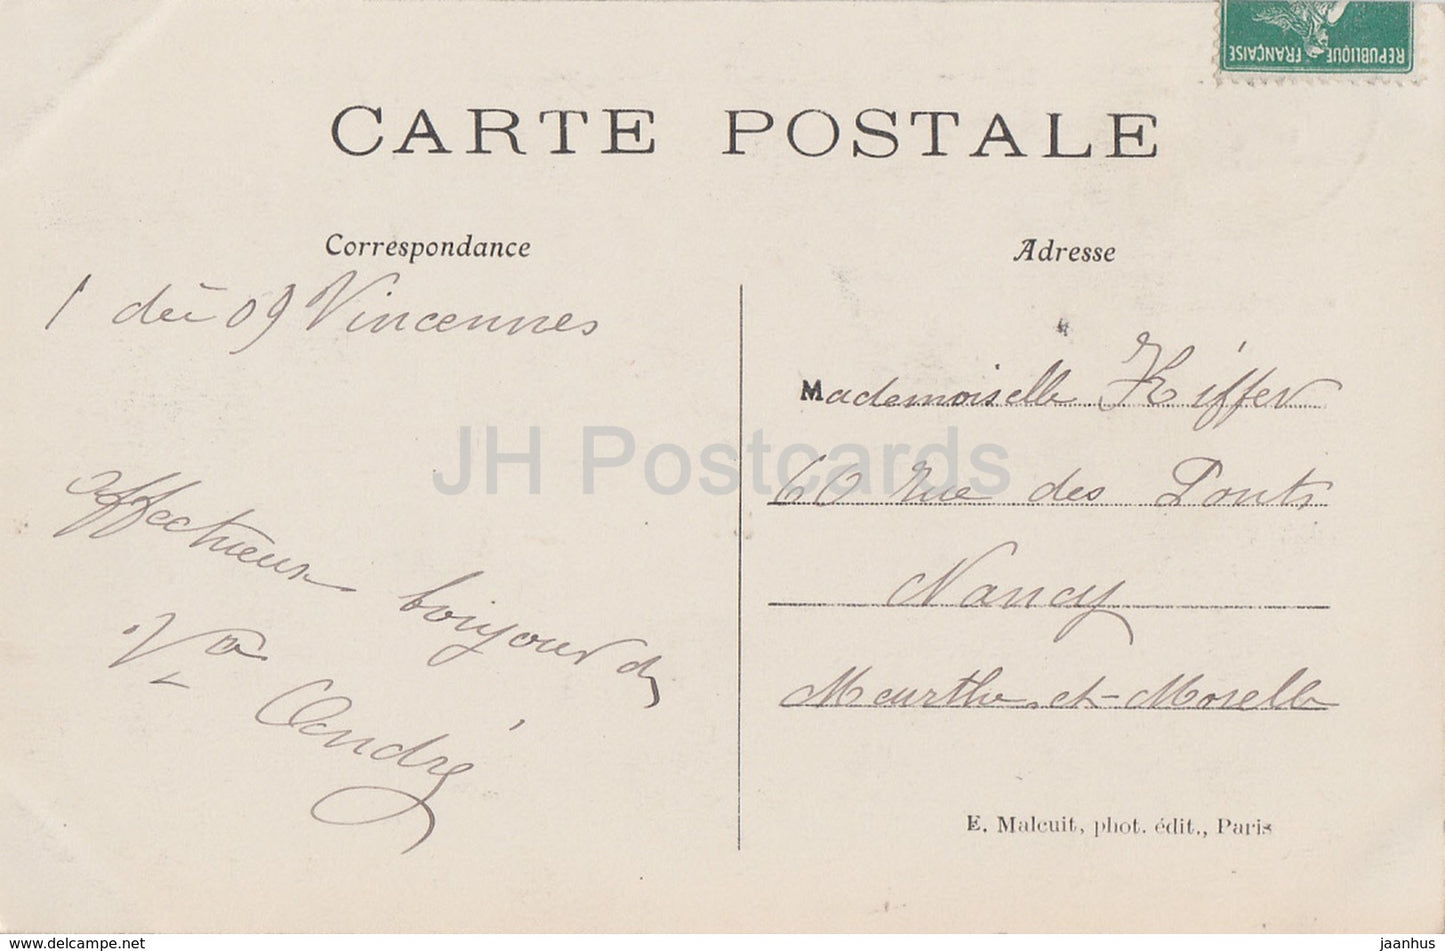 REPUBLIQUE FRANÇAISE
CARTE POSTALE
Correspondance
Adresse
1 déc 09 Vincennes
Mademoiselle Kiffer
60 rue des Ponts
Nancy
Meurthe-et-Moselle
affectueux bonjour de
André
E. Malcuit, phot. édit., Paris
JH Postcards
www.delcampe.net
jaanhus